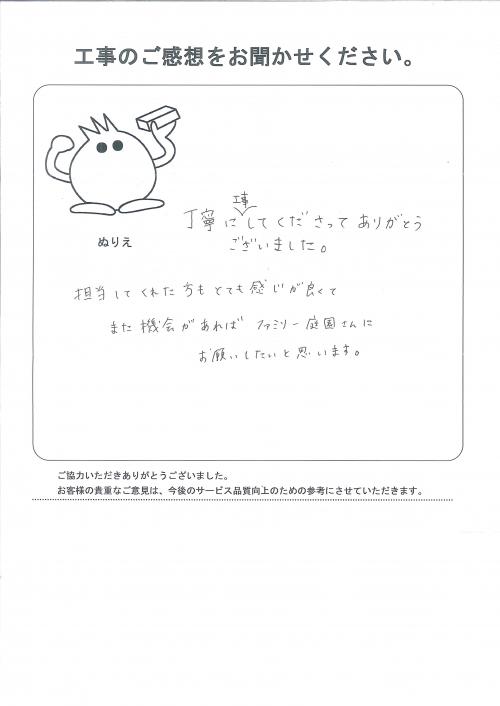 工事のご感想をお聞かせください。
ぬりえ
工事
丁寧にしてくださってありがとう
ございました。
担当してくれた方もとても感じが良くて
また機会があれば ファミリー庭園さんに
お願いしたいと思います。
ご協力いただきありがとうございました。
お客様の貴重なご意見は、今後のサービス品質向上のための参考にさせていただきます。